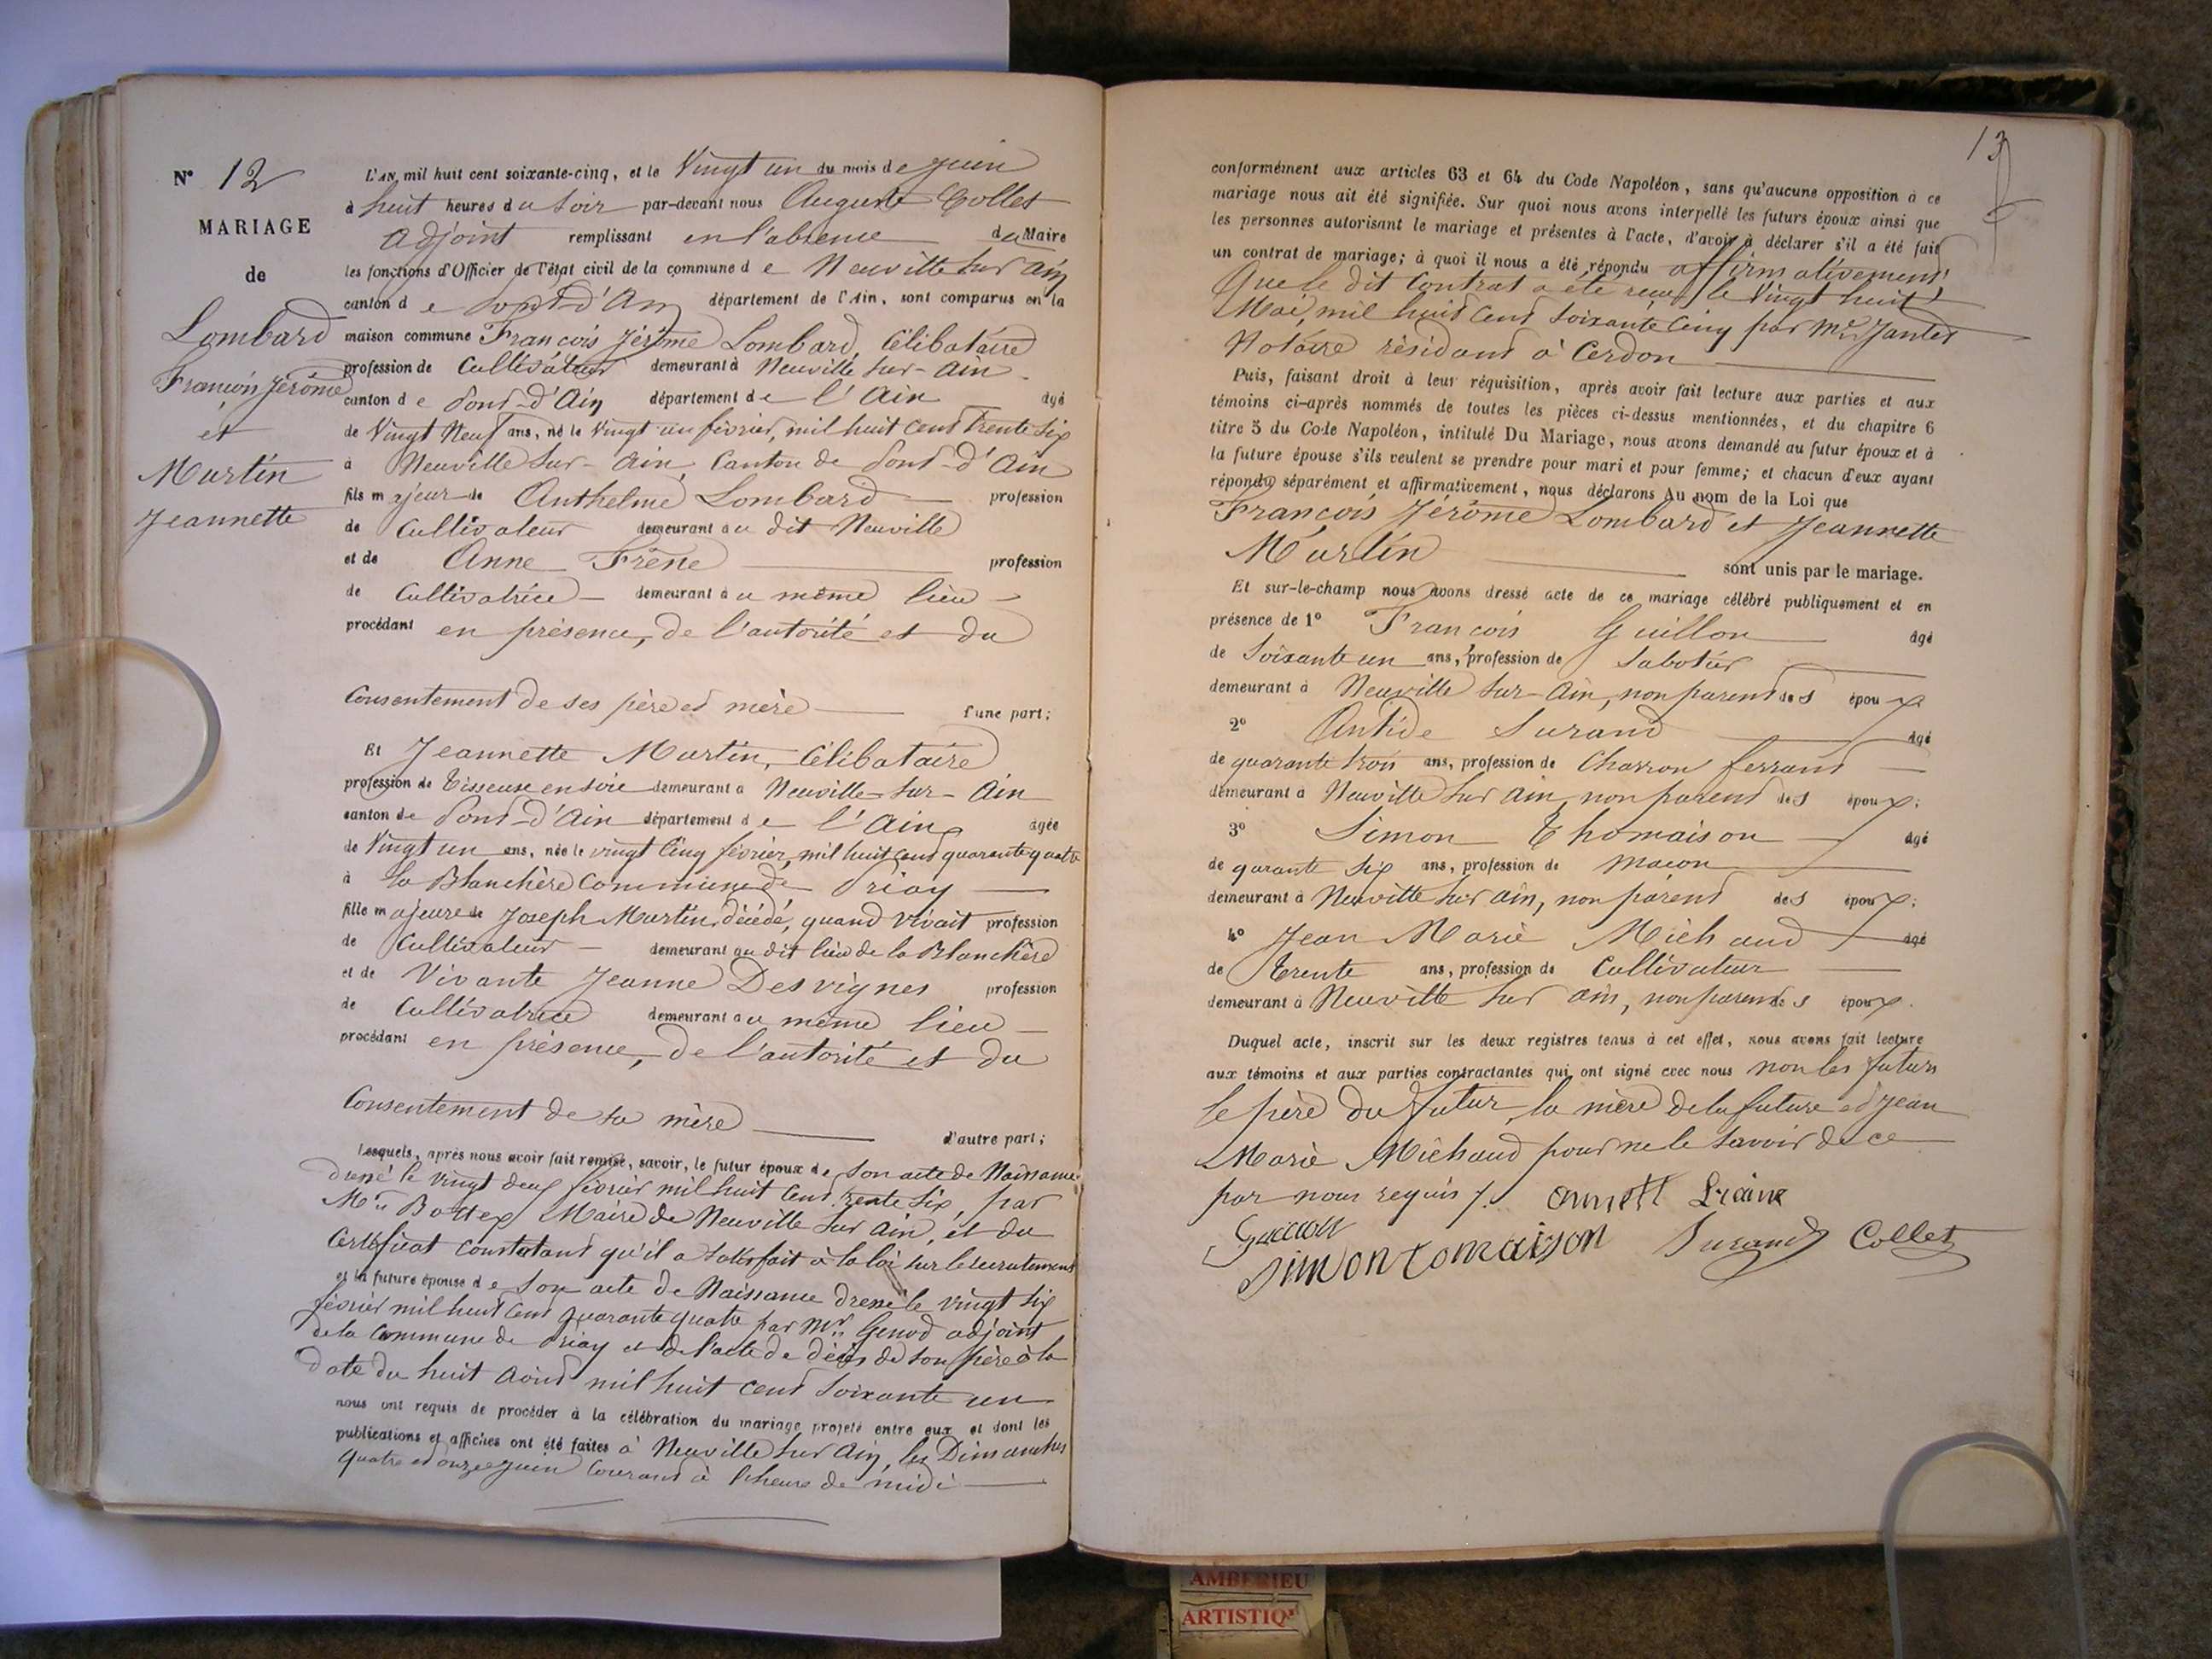 N° 12
MARIAGE
de
Lombard
François Jérôme
et
Martin
Jeannette
L'AN mil huit cent soixante-cinq, et le Vingt un du mois de juin
à huit heures du soir par-devant nous Auguste Collet
adjoint remplissant en l'absence du Maire
les fonctions d'Officier de l'état civil de la commune de Neuville sur Ain
canton de Pont-d'Ain département de l'Ain, sont comparus en la
maison commune François Jérôme Lombard, Célibataire
profession de Cultivateur demeurant à Neuville sur-Ain
canton de Pont-d'Ain département de l'Ain âgé
de Vingt Neuf ans, né le Vingt un février, mil huit cent trente six
à Neuville sur-Ain, Canton de Pont-d'Ain
fils majeur de Anthelme Lombard profession
de Cultivateur demeurant au dit Neuville
et de Anne Frène profession
de Cultivatrice demeurant au même lieu
procédant en présence, de l'autorité et du
Consentement de ses père et mère d'une part;
Et Jeannette Martin, Célibataire
profession de Tisseuse en soie demeurant à Neuville-sur-Ain
canton de Pont-d'Ain département de l'Ain âgée
de Vingt un ans, née le vingt Cinq février mil huit cent quarante quatre
à la Blanchère Commune de Priay
fille majeure de Joseph Martin décédé, quand vivait profession
de Cultivateur demeurant au dit lieu de la Blanchère
et de Vivante Jeanne Desvignes profession
de Cultivatrice demeurant au même lieu
procédant en présence, de l'autorité et du
Consentement de sa mère d'autre part;
Lesquels, après nous avoir fait remise, savoir, le futur époux de son acte de Naissance
dressé le vingt deux février mil huit cent trente six, par
Mr Bottex Maire de Neuville sur Ain, et du
Certificat constatant qu'il a satisfait à la loi sur le recrutement
et la future épouse de son acte de Naissance dressé le vingt six
février mil huit cent quarante quatre par Mr Genod adjoint
de la Commune de Priay et de l'acte de décès de son père à la
date du huit Août mil huit cent soixante un
nous ont requis de procéder à la célébration du mariage projeté entre eux et dont les
publications et affiches ont été faites à Neuville sur Ain, les Dimanches
quatre et onze juin Courant à l'heure de midi
13
conformément aux articles 63 et 64 du Code Napoléon, sans qu'aucune opposition à ce
mariage nous ait été signifiée. Sur quoi nous avons interpellé les futurs époux ainsi que
les personnes autorisant le mariage et présentes à l'acte, d'avoir à déclarer s'il a été fait
un contrat de mariage; à quoi il nous a été répondu affirmativement
Que le dit Contrat a été reçu le Vingt huit
Mai, mil huit cent soixante Cinq par Me Jantet
Notaire résidant à Cerdon
Puis, faisant droit à leur réquisition, après avoir fait lecture aux parties et aux
témoins ci-après nommés de toutes les pièces ci-dessus mentionnées, et du chapitre 6
titre 5 du Code Napoléon, intitulé Du Mariage, nous avons demandé au futur époux et à
la future épouse s'ils veulent se prendre pour mari et pour femme; et chacun d'eux ayant
répondu séparément et affirmativement, nous déclarons Au nom de la Loi que
François Jérôme Lombard et Jeannette
Martin sont unis par le mariage.
Et sur-le-champ nous avons dressé acte de ce mariage célébré publiquement et en
présence de 1° François Guillon âgé
de Soixante un ans, profession de Sabotier
demeurant à Neuville sur-Ain, non parent des époux
2° Antide Surand âgé
de quarante trois ans, profession de Charron ferrant
demeurant à Neuville sur Ain, non parent des époux;
3° Simon Thomaison âgé
de quarante six ans, profession de Macon
demeurant à Neuville sur Ain, non parent des époux;
4° Jean Marie Michaud âgé
de trente ans, profession de Cultivateur
demeurant à Neuville sur Ain, non parent des époux.
Duquel acte, inscrit sur les deux registres tenus à cet effet, nous avons fait lecture
aux témoins et aux parties contractantes qui ont signé avec nous non les futurs
le père du futur, la mère de la future et Jean
Marie Michaud pour ne le savoir de ce
par nous requis
Simon tomaison Surand Collet
AMBERIEU
ARTISTIQ